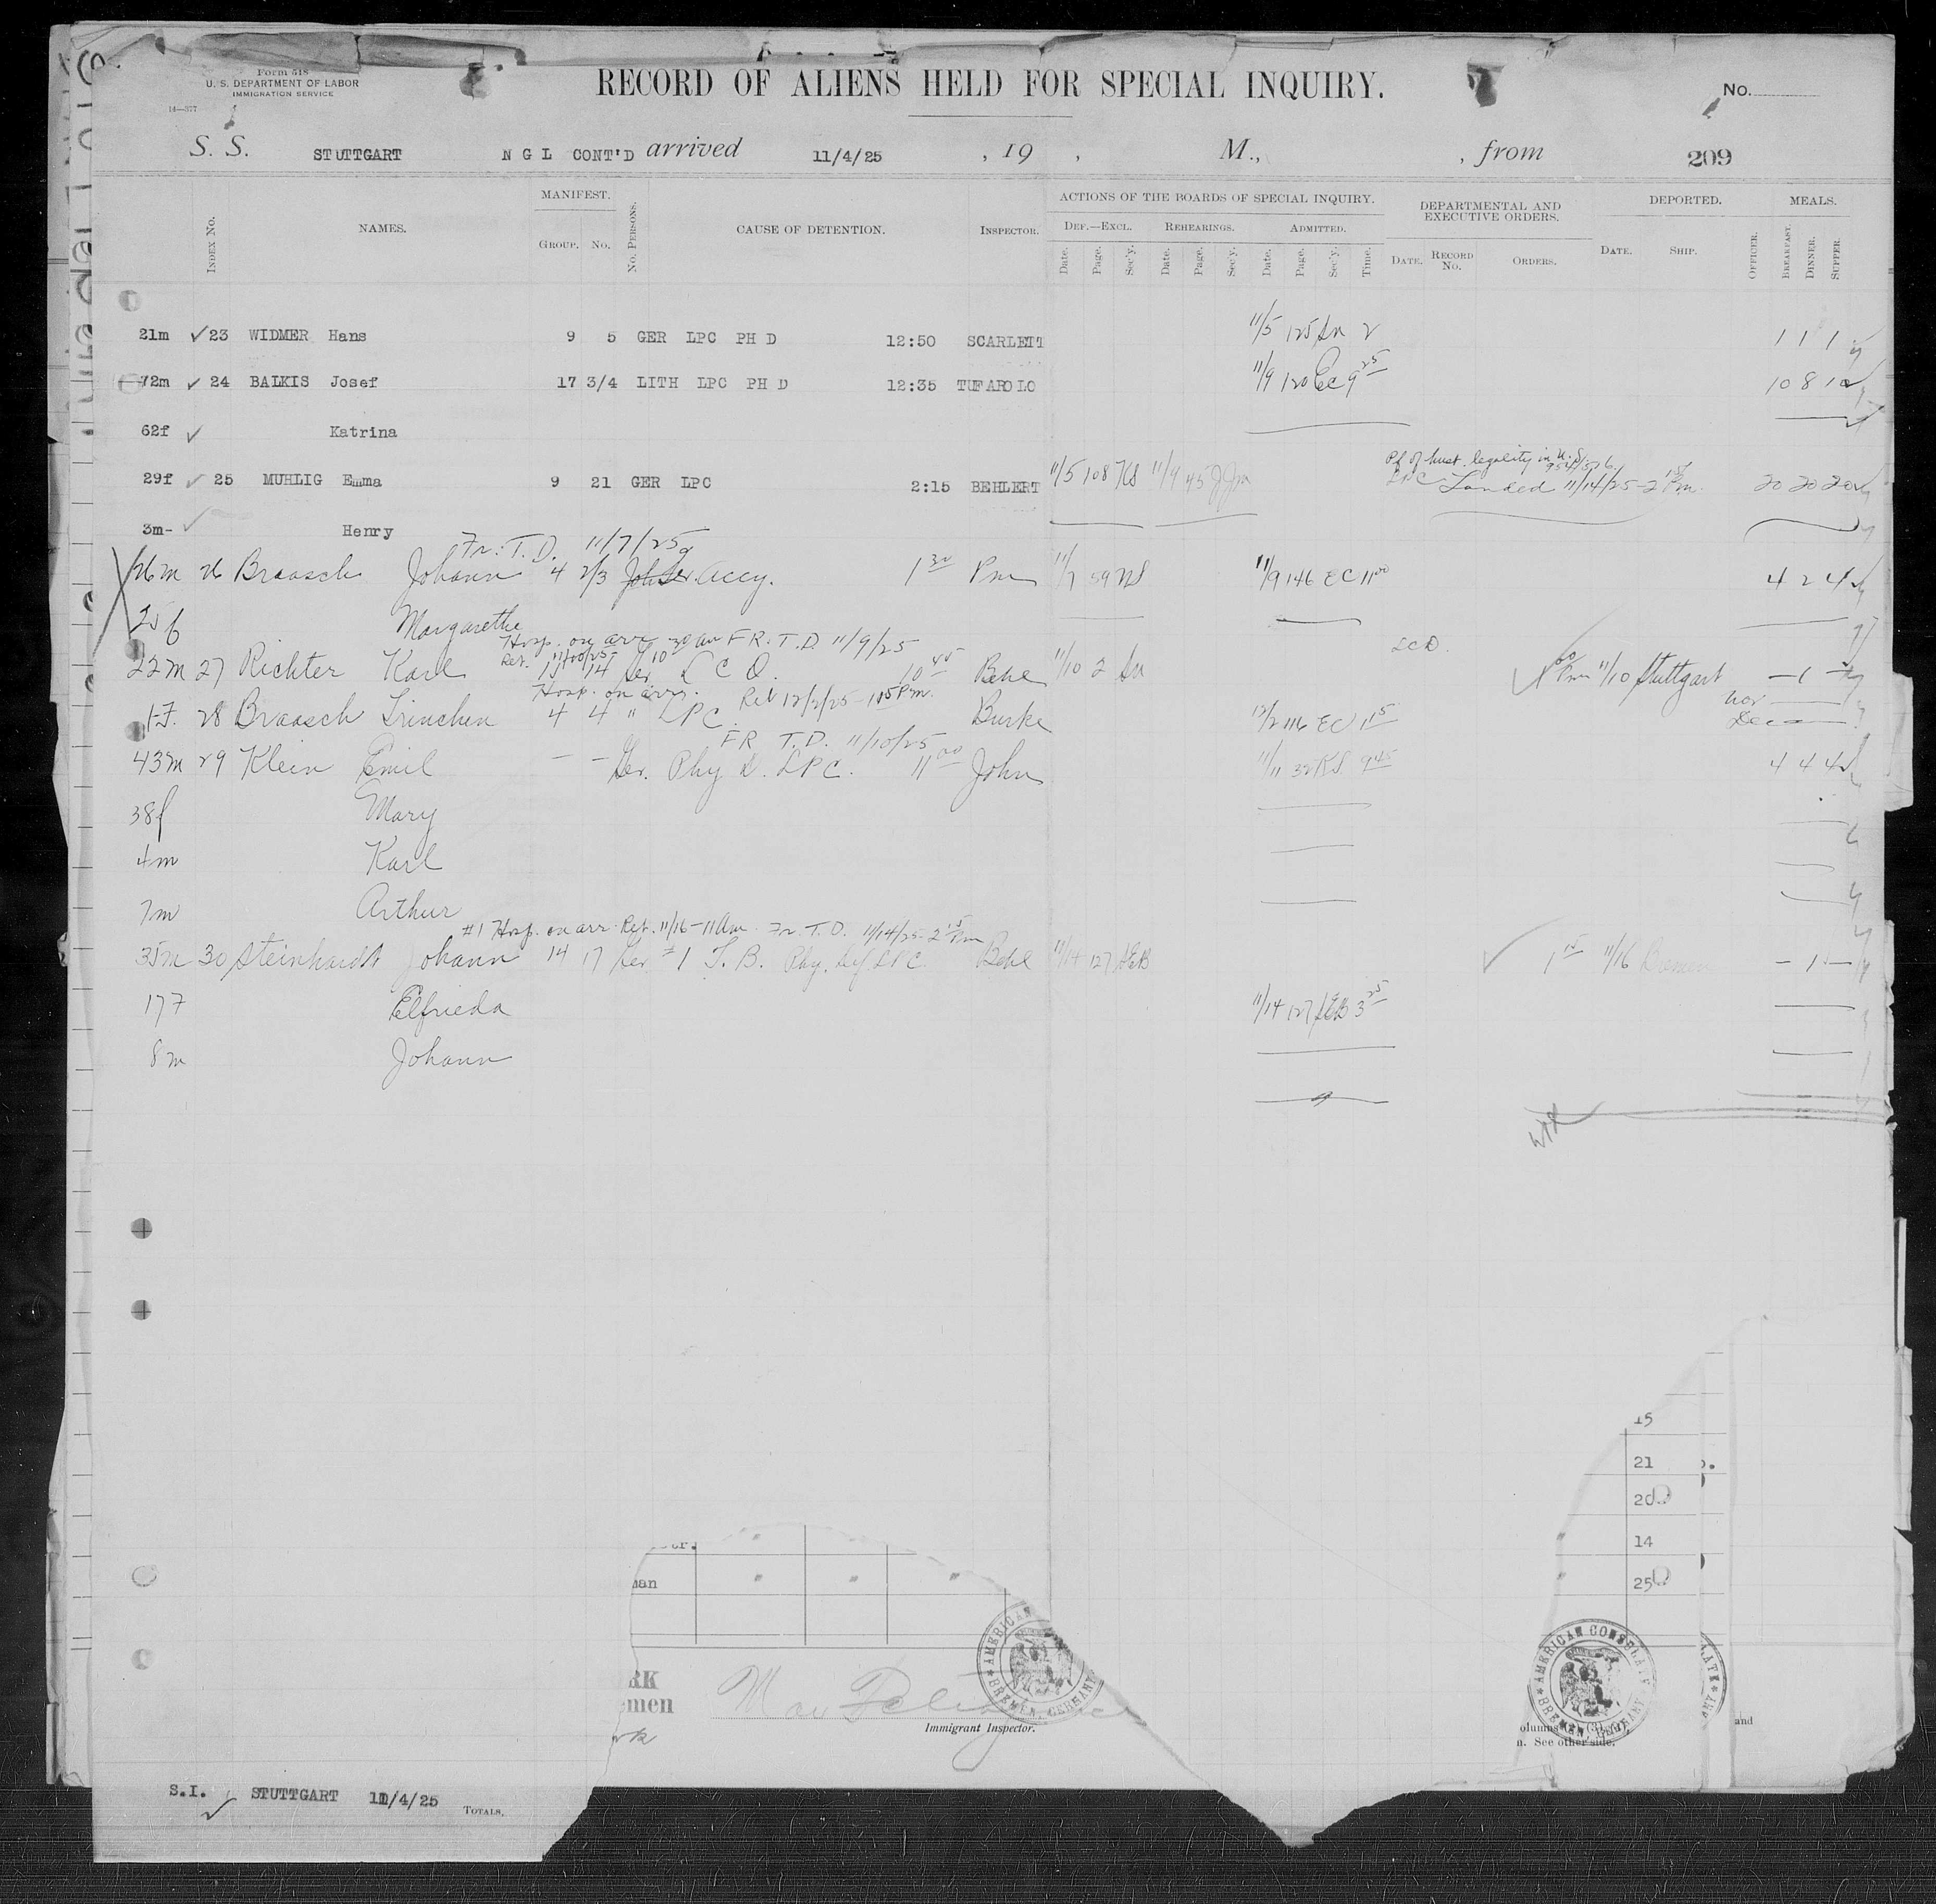 Form 518
U. S. DEPARTMENT OF LABOR
IMMIGRATION SERVICE
14—377
RECORD OF ALIENS HELD FOR SPECIAL INQUIRY.
No.
S. S. STUTTGART N G L CONT'D arrived 11/4/25 , 19 , M., , from 209
Index No. NAMES. MANIFEST. Group. No. No. Persons. CAUSE OF DETENTION. Inspector. ACTIONS OF THE BOARDS OF SPECIAL INQUIRY. Def.—Excl. Rehearings. Admitted. Date. Page. Sec'y. Date. Page. Sec'y. Date. Page. Sec'y. Time. DEPARTMENTAL AND EXECUTIVE ORDERS. Date. Record No. Orders. DEPORTED. Date. Ship. MEALS. Officer. Breakfast. Dinner. Supper.
21m 23 WIDMER Hans 9 5 GER LPC PH D 12:50 SCARLETT 11/5 125 Sn 2 1 1 1
72m 24 BALKIS Josef 17 3/4 LITH LPC PH D 12:35 TUFAROLO 11/9 120 EC 9 25 10 8 10
62f Katrina
Pf of hust. legality in U.S.
29f 25 MUHLIG Emma 9 21 GER LPC 2:15 BEHLERT 11/5 108 KS 11/9 45 LPC Landed 11/14/25 - 2 Pm. 20 20 20
3m- Henry
Fr. T. D. 11/7/25
26m 26 Braasch Johann 4 2/3 Accy. 1 30 Pm 11/7 59 NS 11/9 146 EC 11 00 4 2 4
25f Margarethe
Hosp. on arr FR. T. D. 11/9/25
22m 27 Richter Karl 14 Ger L C D. 10 45 Behl 11/10 2 Sn LCD. Pm 11/10 Stuttgart — 1 —
Hosp. on arr. Ret 12/2/25 - 115 Pm.
1F. 28 Braasch Trinchen 4 4 " LPC. Burke 12/2 116 EC 1 15 Nov — Dec —
FR T. D. 11/10/25
43m 29 Klein Emil — — Ger. Phy D. LPC. 11 00 John 11/11 32 KS 9 45 4 4 4
38f Mary
4m Karl
7m Arthur
#1 Hosp. on arr. Ret. 11/16 - 11 Am. Fr. T. D. 11/14/25 - 2 15 Pm
35m 30 Steinhardt Johann 14 17 Ger #1 T. B. Phy. Def LPC. Behl 11/14 127 SEB 1 15 11/16 Bremen — 1 —
17F Elfrieda 11/14 127 SEB 3 25
8m Johann
15
21
20
14
25
man " " "
AMERICAN CONSULATE BREMEN, GERMANY
RK
men
Immigrant Inspector.
n. See other side.
and
S.I. STUTTGART 11/4/25 Totals.